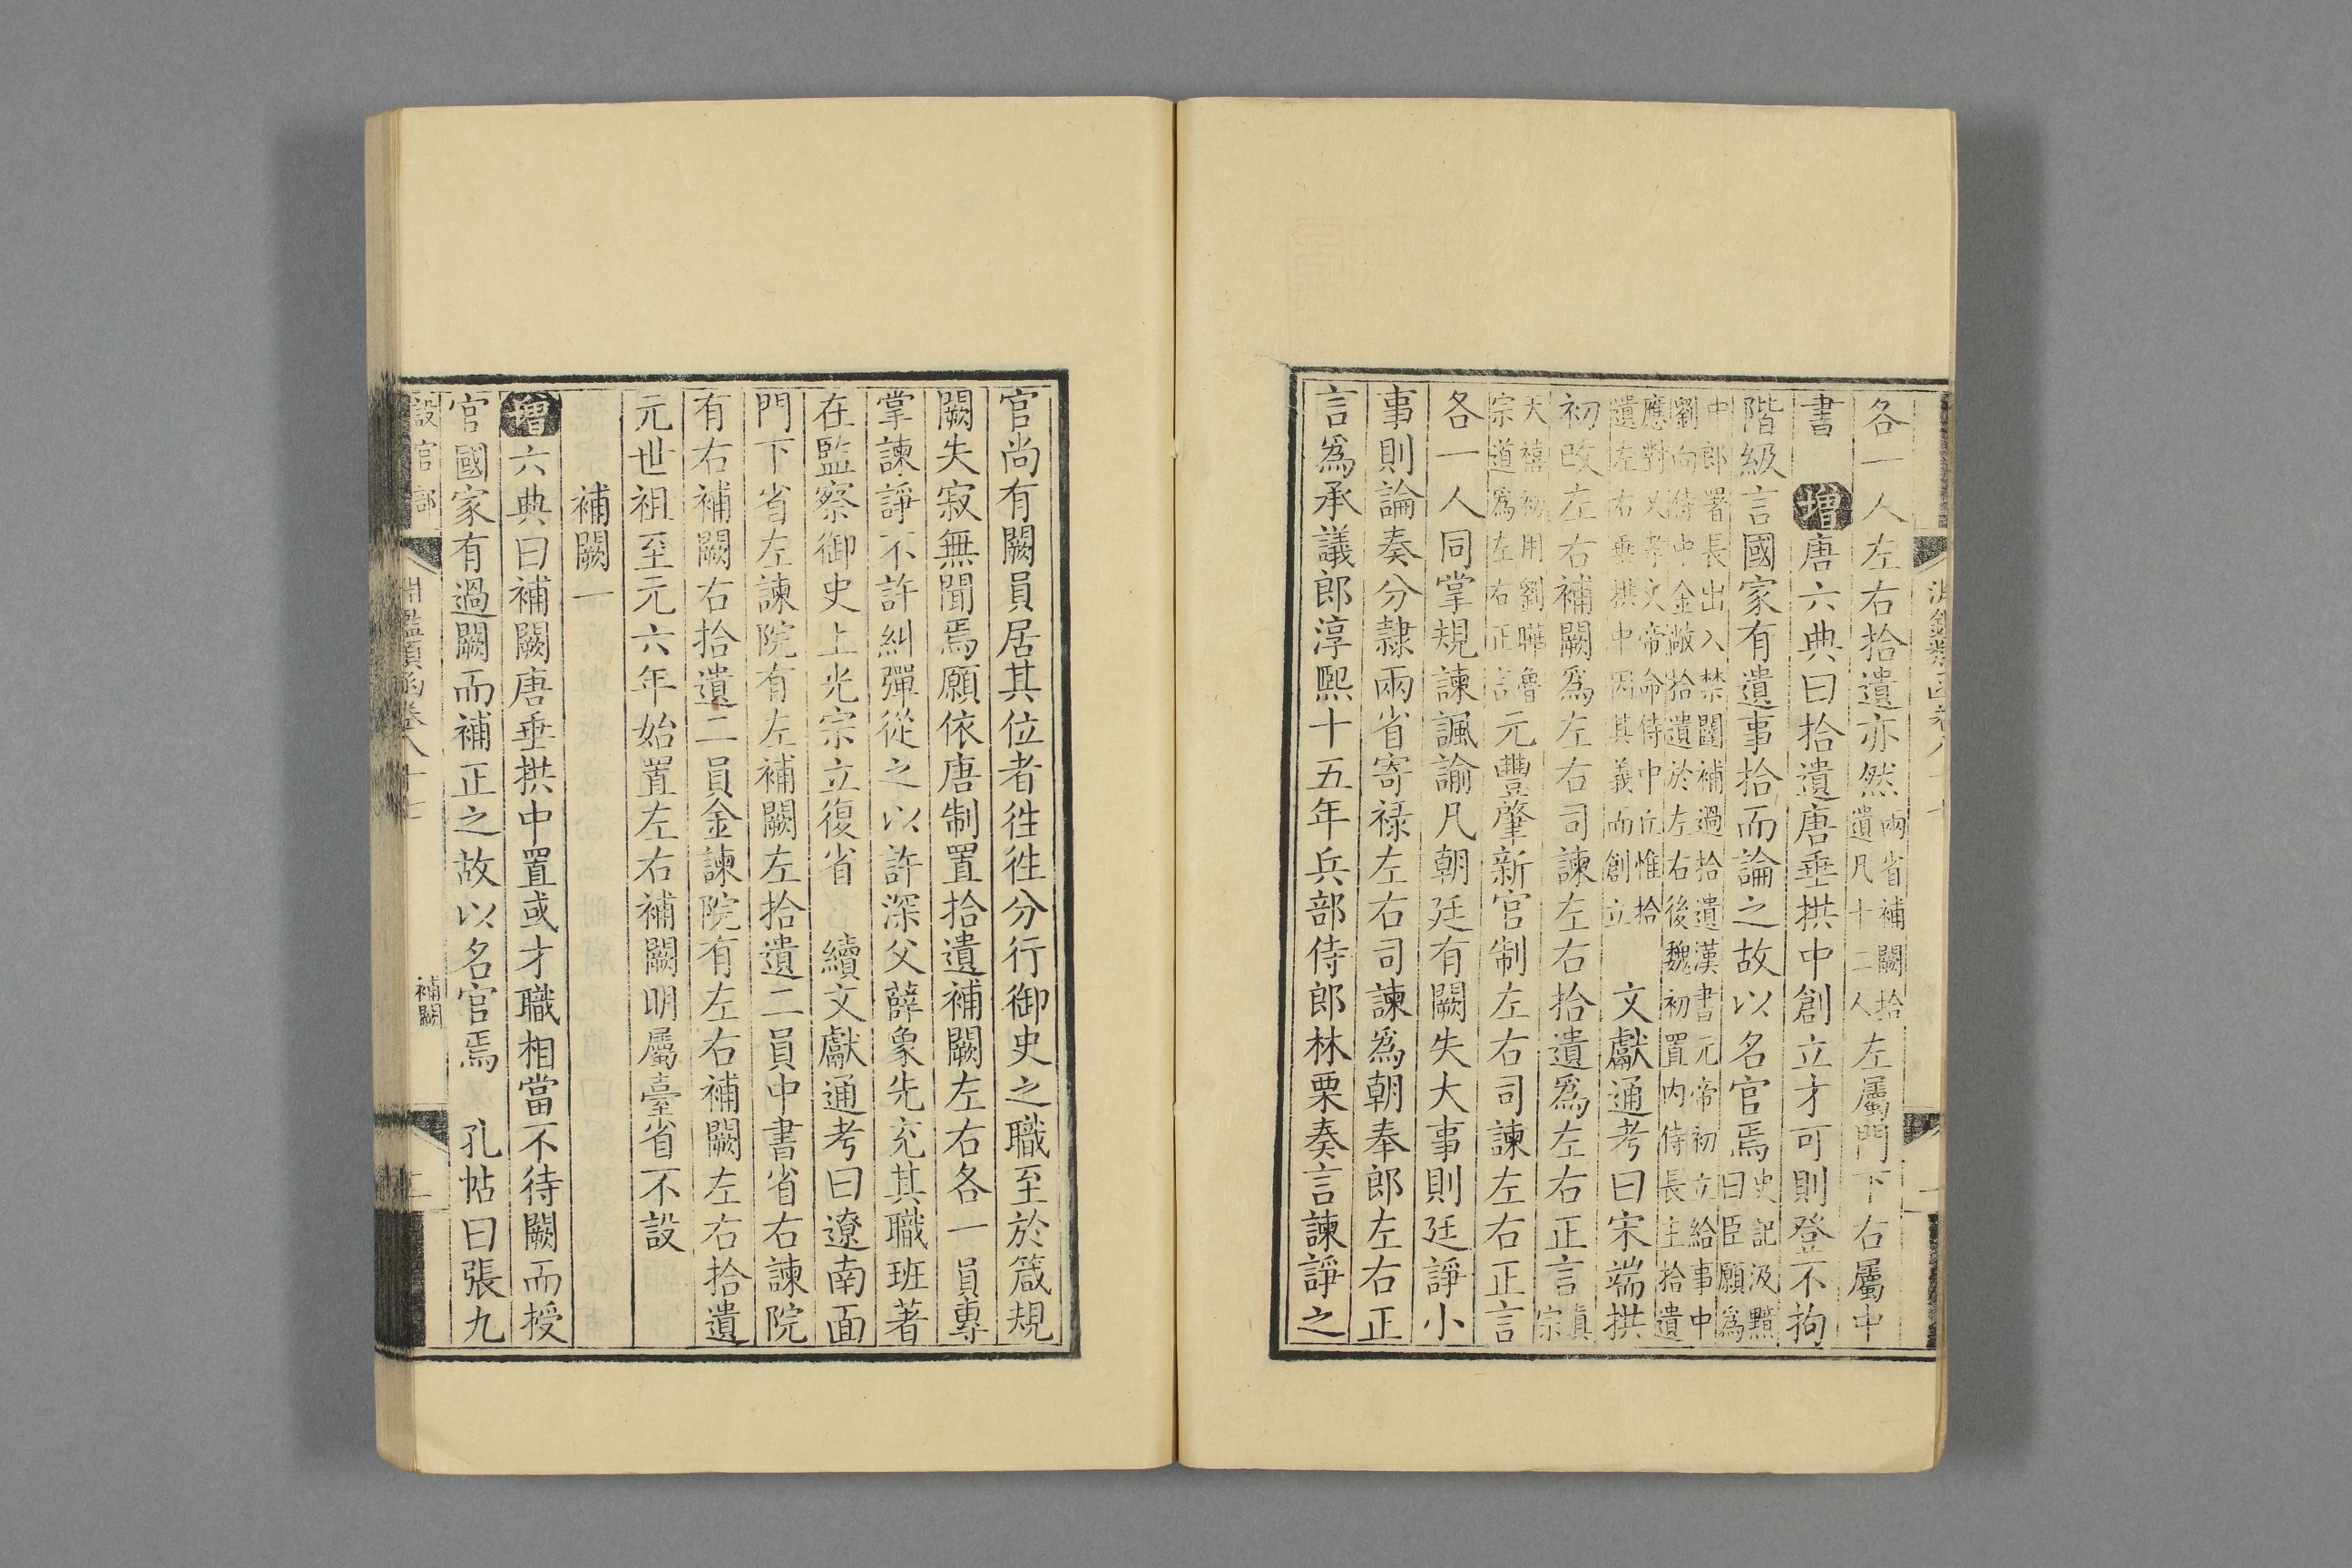 各一人左右拾遺亦然兩省補闕拾遺凡十二人左屬門下右屬中
書 增唐六典曰拾遺唐垂拱中創立才可則登不拘
階級言國家有遺事拾而論之故以名官焉史記汲黯曰臣願爲
中郎署長出入禁闥補過拾遺漢書元帝初立給事中劉向侍中金敞拾遺於左右後魏初置内侍長主拾遺
應對又孝文帝命侍中丘惟拾遺左右垂拱中因其義而創立 文獻通考曰宋端拱
初改左右補闕爲左右司諫左右拾遺爲左右正言真宗
天禧初用劉曄魯宗道爲左右正言元豐肇新官制左右司諫左右正言
各一人同掌規諫諷諭凡朝廷有闕失大事則廷諍小
事則論奏分隸兩省寄祿左右司諫爲朝奉郎左右正
言爲承議郎淳熙十五年兵部侍郎林栗奏言諫諍之
官尚有闕員居其位者徃徃分行御史之職至於箴規
闕失寂無聞焉願依唐制置拾遺補闕左右各一員專
掌諫諍不許糾彈從之以許深父薛象先充其職班著
在監察御史上光宗立復省 續文獻通考曰遼南面
門下省左諫院有左補闕左拾遺二員中書省右諫院
有右補闕右拾遺二員金諫院有左右補闕左右拾遺
元世祖至元六年始置左右補闕明屬臺省不設
補闕一
增六典曰補闕唐垂拱中置或才職相當不待闕而授
官國家有過闕而補正之故以名官焉 孔帖曰張九
設官部 淵鑑類函卷八十七 補闕 二